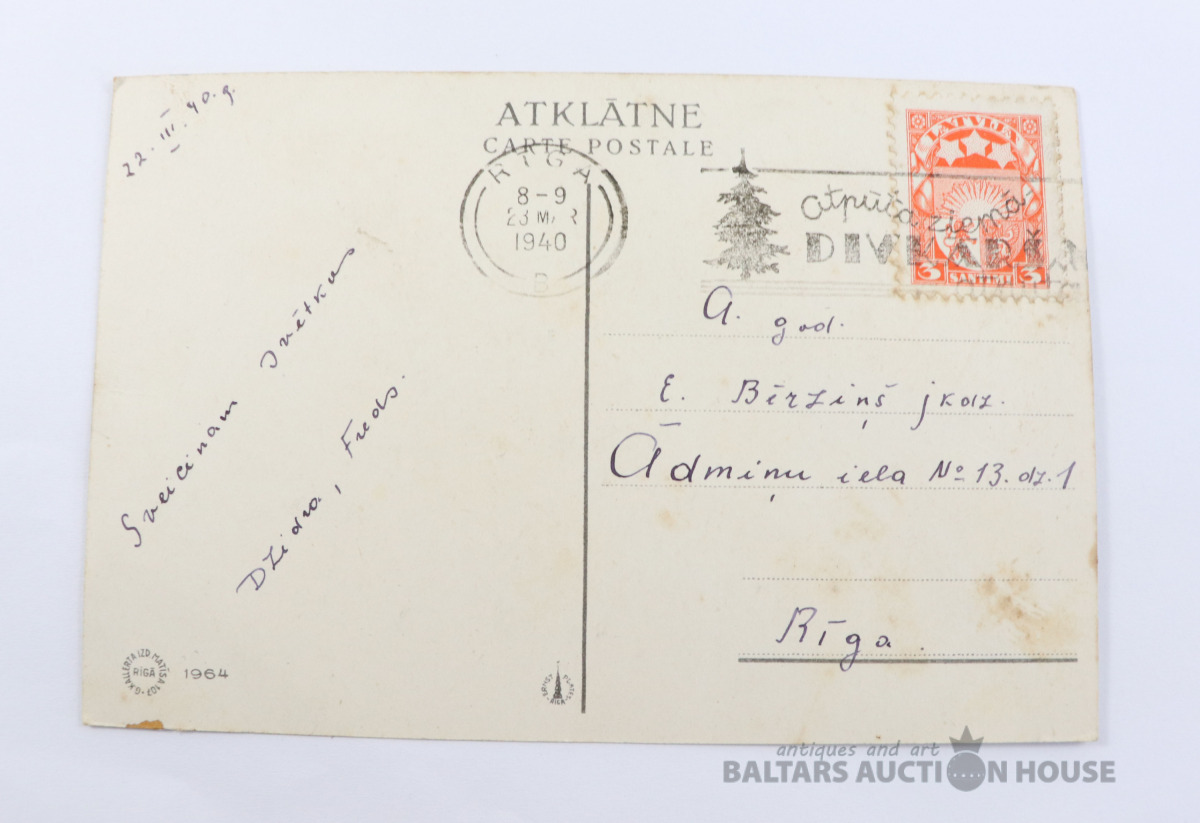 22. III. 40. g.
Sveicinam svētkus
Dzidra, Freds.
G. KALLERTA IZD. MATĪSA 103
RĪGĀ
1964
ATKLĀTNE
CARTE POSTALE
RĪGA
8-9
23 MAR
1940
B
atpūta ziemā
LATVIJA
3 SANTIMI 3
A. god.
E. Bērziņš jkdz.
Ādmiņu iela No 13. dz. 1
Rīga
ERNST PLATES
RĪGA
antiques and art
BALTARS AUCTION HOUSE